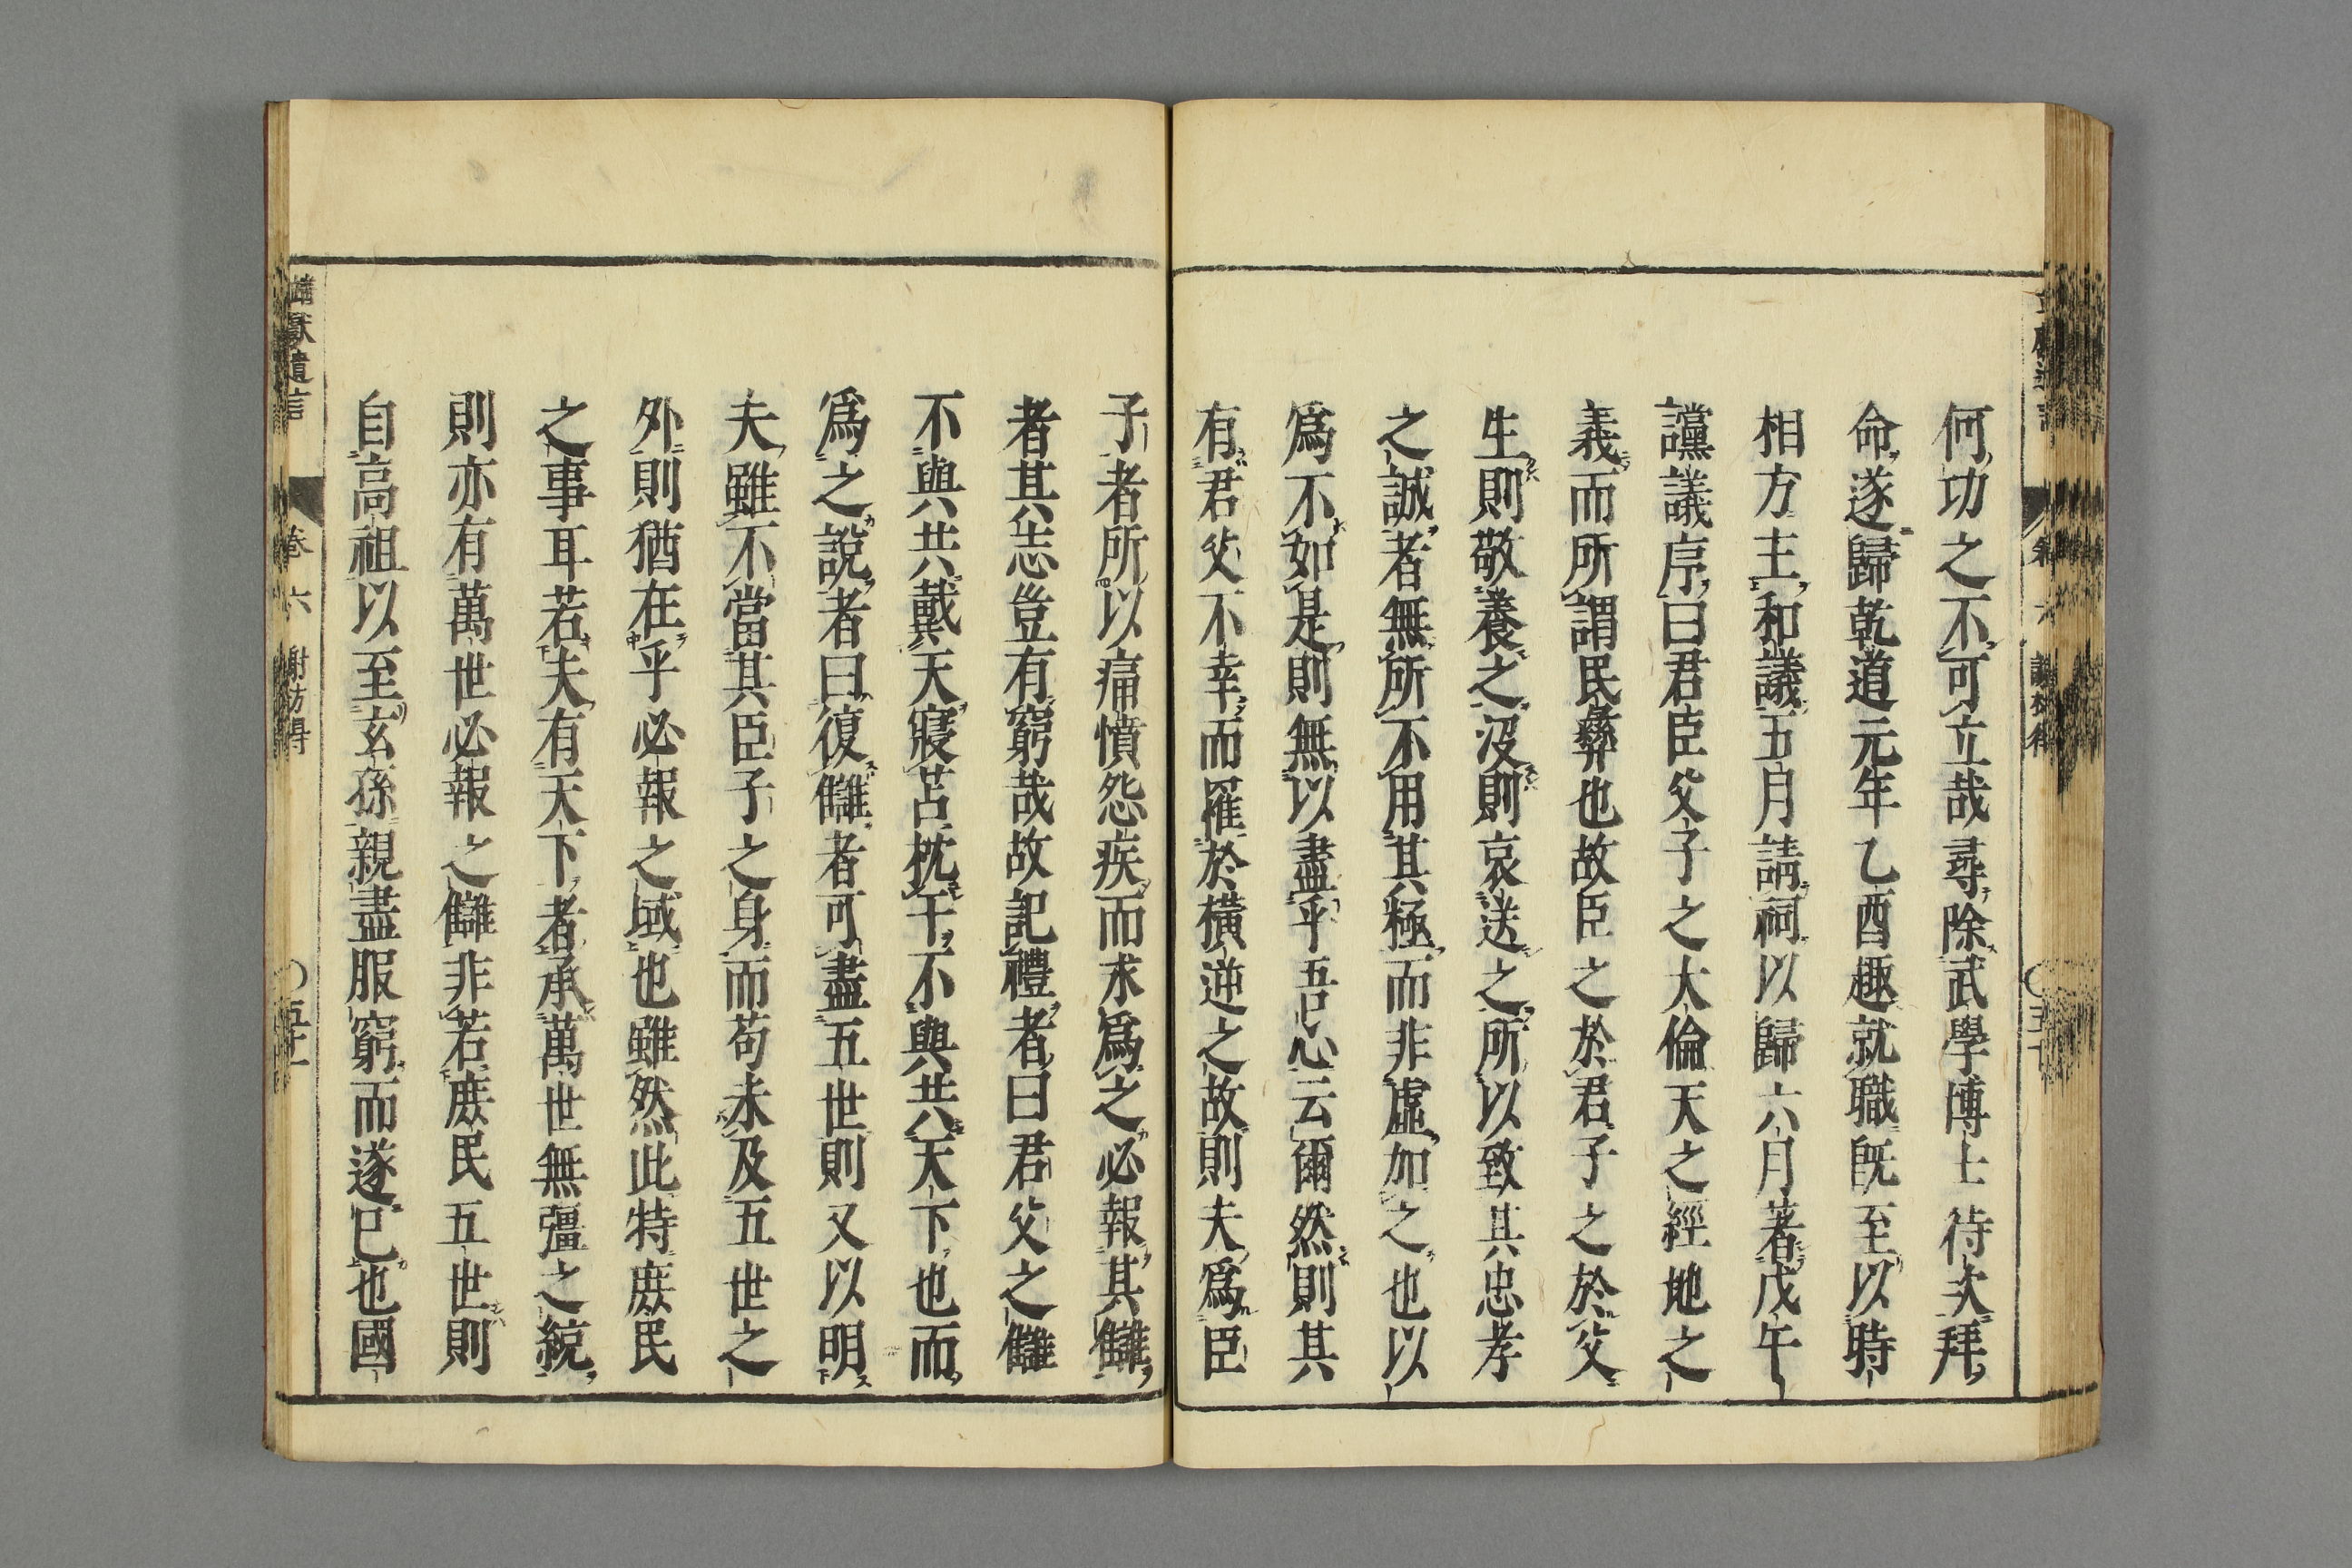 何功之不可立哉尋除武學博士待次拜
命遂歸乾道元年乙酉趣就職既至以時
相方主和議五月請祠以歸六月著戊午
讜議序曰君臣父子之大倫天之經地之
義而所謂民彝也故臣之於君子之於父
生則敬養之沒則哀送之所以致其忠孝
之誠者無所不用其極而非虛加之也以
爲不如是則無以盡乎吾心云爾然則其
有君父不幸而罹於橫逆之故則夫爲臣
子者所以痛憤怨疾而求爲之必報其讎
者其志豈有窮哉故記禮者曰君父之讎
不與共戴天寢苫枕干不與共天下也而
爲之說者曰復讎者可盡五世則又以明
夫雖不當其臣子之身而苟未及五世之
外則猶在乎必報之域也雖然此特庶民
之事耳若夫有天下者承萬世無疆之統
則亦有萬世必報之讎非若庶民五世則
自高祖以至玄孫親盡服窮而遂已也國
靖獻遺言 卷六 謝枋得 〇五十一